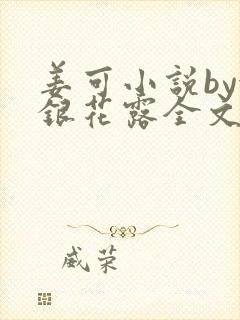 姜可小說by
銀花露全文
威荣